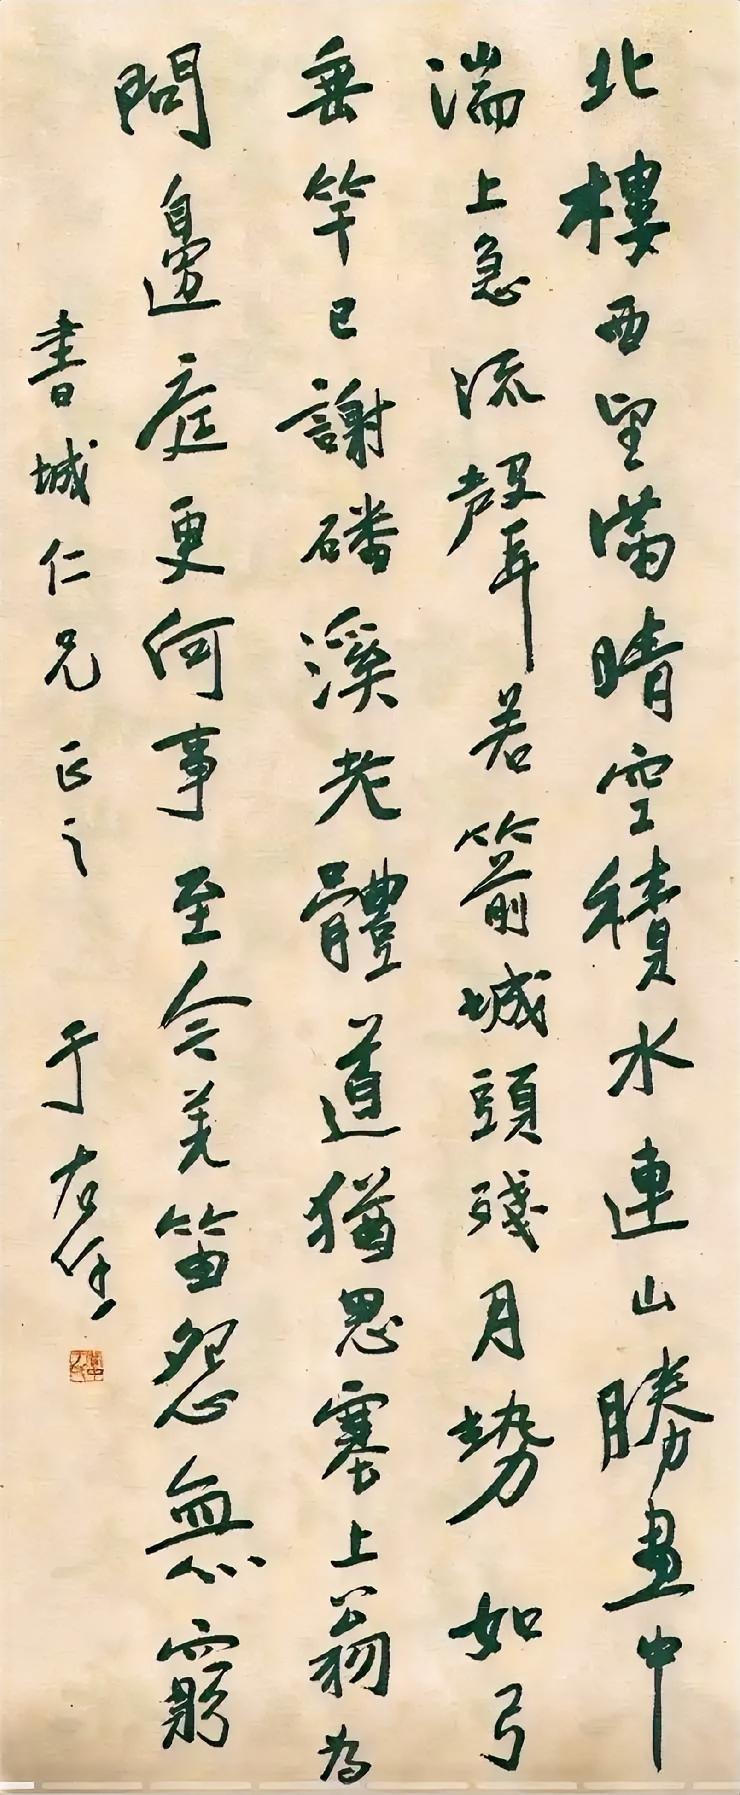 北樓西望滿晴空積水連山勝畫中
湍上急流聲若箭城頭殘月勢如弓
垂竿已謝磻溪老體道猶思塞上翁為
問邊庭更何事至今羌笛怨無窮
書城仁兄正之
于右任